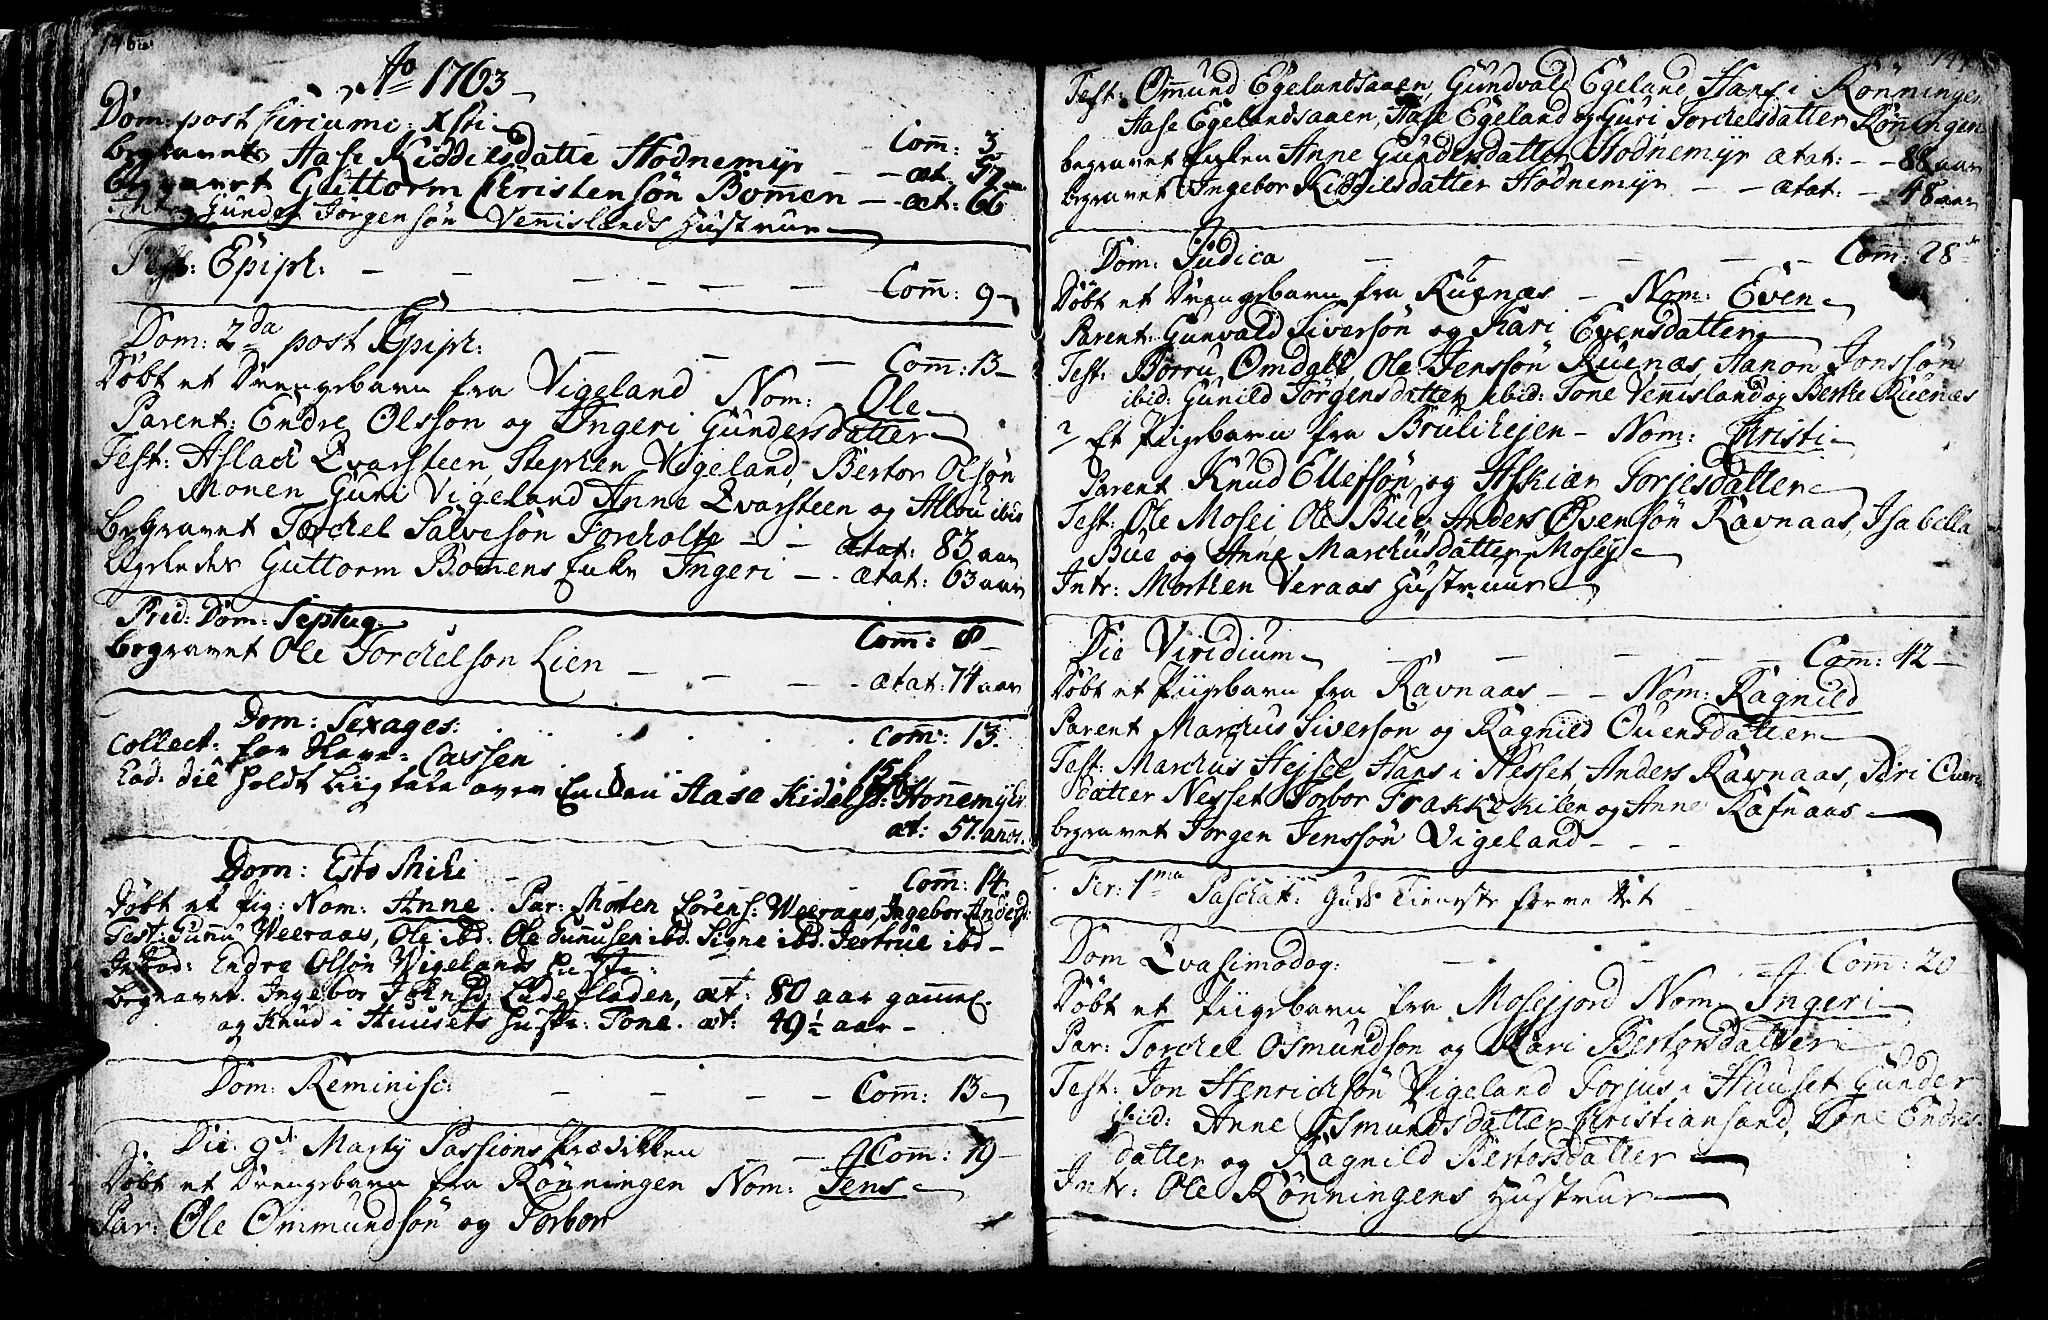 146
Ao 1763
Dom: post Circumc: Xsti Com: 3
begravet Aase Kiddelsdatte Hodnemyr - - æt. 57
begravet Guttorm Christensön Bomen - æt: 66
Gunder Jörgensön Vennislands Hustrue
Fest: Epiph: - - - - - - Com: 9
Dom: 2da post Epiph: - - - Com: 13
Döbt et Drengebarn fra Vigeland Nom: Ole
Parent: Endre Olsson og Ingeri Gundersdatter
Test: Aslach Qvarsteen, Stephen Vigeland, Bertor Olsön
Monen Guri Vigeland Anne Qvarsteen og Allou ibid
Begravet Torchel Salvesön Forcholte - - ætat: 83 aar
Ligeledes Guttorm Bomens Enke Ingeri - ætat: 63 aar
Prid: Dom: Septuag.
begravet Ole Torchelson Lien Com: 8
- - - ætat: 74 aar
Dom: Sexages: Com: 13.
Collect: for Havn-Cassen 15 s
Ead: die holdt Liigtale over Enchen Aase Kidelsd: Honnemyhr
æt: 57. annor.
Dom: Esto Mihi Com: 14.
Döbt et Pig: Nom: Anne. Par: Morten Sörens: Weeraas, Ingebor Andersd:
Test: Gunnu Weeraas, Ole ibd: Ole Gunnusen ibd. Signe ibd. Jertrue ibd -
Introd: Endre Olsön Wigelands Hustr:
Begravet. Ingebor Eidefladen, æt: 80 aar gammel.
og Knud i Huusets Hustr: Tone. æt: 49½ aar -
Dom: Reminisc: - - - - Com: 13
Die 9de Marty Passions Prædikken - - Com: 19
Döbt et Drengebarn fra Rönningen Nom: Jens
Par: Ole Ommundsön og Torbor
Test: Ommund Egelandsaaen, Gundvald Egeland, Hans i Rönningen
Aase Egelandsaaen, Aase Egeland og Guri Torchelsdatter Rönningen
begravet Enken Anne Gundersdatter Hodnemyr ætat: - - 88 aar
begravet Ingebor Kiddelsdatter Hodnemyr - - ætat: - - 48 aar
Dom: Judica - - - - - Com: 28
Döbt et Drengebarn fra Ruenæs - Nom: Even
Parent: Gunvald Siversön og Kari Evensdatter
Test: Börru Omdall Ole Jenssön Ruenæs, Hanon Jonssön
ibid: Gunild Jörgensdatter ibid: Tone Vennisland og Berthe Ruenæs
2/ Et Piigebarn fra Brulihejen - Nom: Christi
Parent Knud Ellefsön og Askiær Torjesdatter
Test: Ole Mosei, Ole Bue, Anders Ovensön Ravnaas, Isabella
Bue og Anne Marchusdatter Mosey
Intr: Morthen Veraas Hustruue
Die Viridium - - - - Com: 42
Döbt et Piigebarn fra Ravnaas - - Nom: Ragnild
Parent Marchus Siverson og Ragnild Ovensdatter
Test: Marchus Hejsel Hans i Nesset Anders Ravnaas, Siri Oven
datter Nesset Torbor Frakkekilen og Anne Rafnaas
begravet Jorgen Jenssön Vigeland - - -
Fer: 1ma Paschat: Guds Tieneste forrettet
Dom Qvasimodog: - - - Com: 20
Döbt et Piigebarn fra Mosejjord Nom Ingeri
Par: Torchel Osmundson og Kari Bertorsdatter
Test: Jon Henrichsön Vigeland Torjus i Huuset Gunder
ibid: Anne Osmundsdatter Christiansand, Tone Endres
datter og Ragnild Bertorsdatter
Intr: Ole Rönningens Hustrue